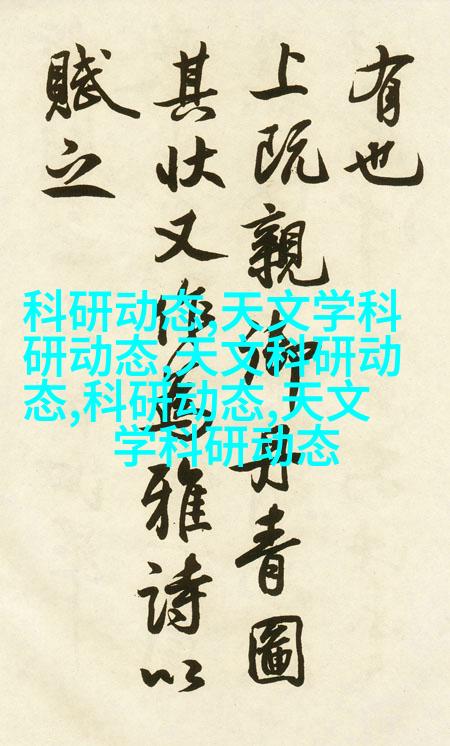 有也
上既親御丹青圖
其狀又作為雅詩以
賦之
科研动态,天文学科
研动态,天文科研动
态,科研动态,天文
学科研动态